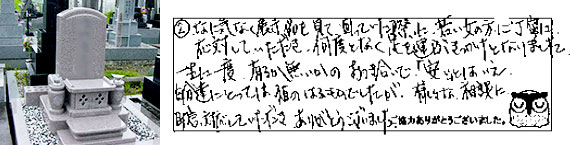 ② なに気なく展示品を見て回っていた際に、若い女の方に丁寧に
応対していただき、何度となく足を運ぶきっかけとなりました。
一生に一度有るか無いかのお話で、「安い」とはいえ
自分達にとっては値のはるものでしたが、様々な相談に
対応していただき ありがとうございました。
ご協力ありがとうございました。